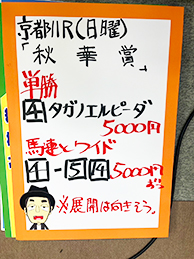 京都11R(日曜)
「秋華賞」
単勝
④タガノエルピーダ
5000円
馬連とワイド
④-⑤⑭5000円
ずつ
※展開は向きそう。